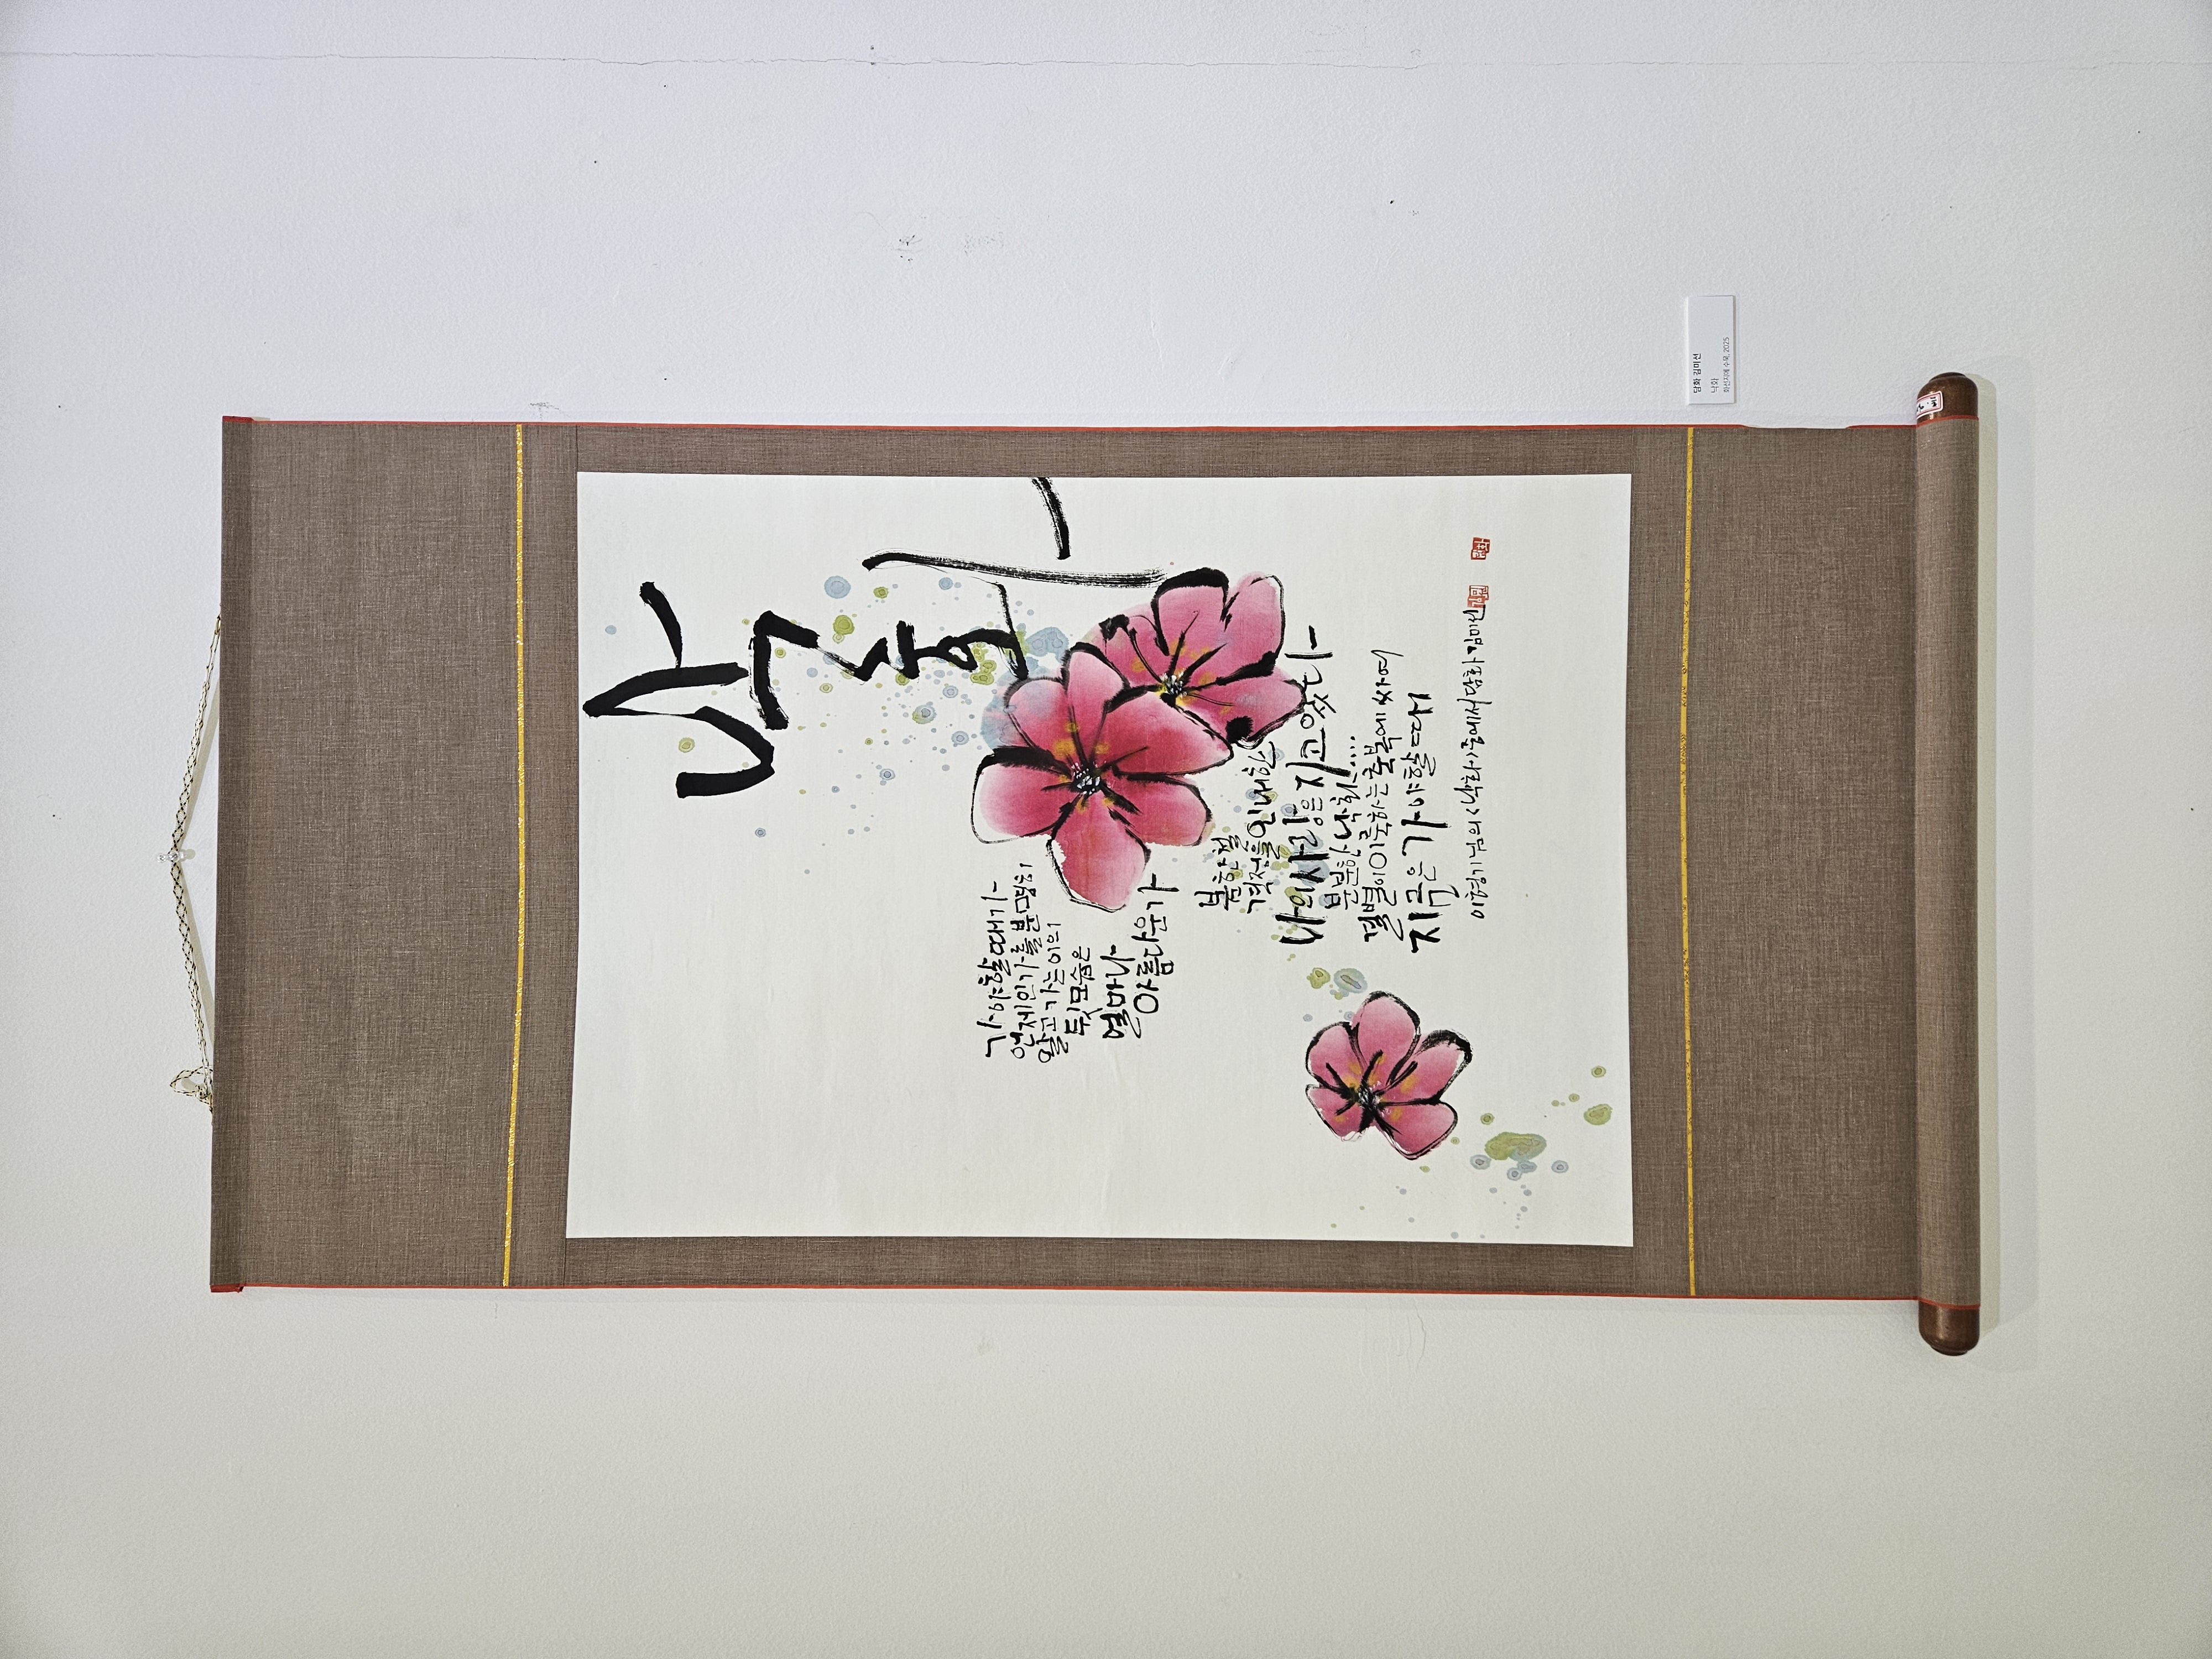 낙화
가야할 때가
언제인가를 분명히
알고 가는 이의
뒷모습은
얼마나
아름다운가
봄 한철
격정을 인내한
나의 사랑은 지고 있다
분분한 낙화....
결별이 이룩하는 축복에 싸여
지금은 가야할 때
이형기님의 <낙화> 중에서 담화 김미선
담화 김미선
낙화
화선지에 수묵, 2025